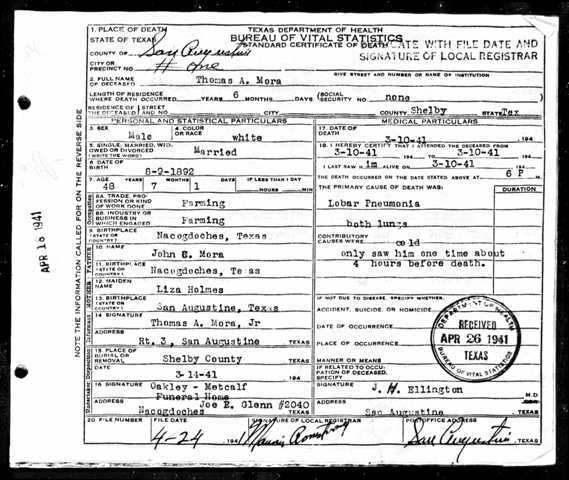 TEXAS DEPARTMENT OF HEALTH
BUREAU OF VITAL STATISTICS
STANDARD CERTIFICATE OF DEATH
CATE WITH FILE DATE AND
SIGNATURE OF LOCAL REGISTRAR
1. PLACE OF DEATH
STATE OF TEXAS
COUNTY OF San Augustine
CITY OR PRECINCT NO. # one
GIVE STREET AND NUMBER OR NAME OF INSTITUTION
2. FULL NAME OF DECEASED Thomas A. Mora
LENGTH OF RESIDENCE WHERE DEATH OCCURRED YEARS 6 MONTHS DAYS (SOCIAL SECURITY NO. none
RESIDENCE OF THE DECEASED STREET AND NO. CITY COUNTY Shelby STATE Tex
PERSONAL AND STATISTICAL PARTICULARS
3. SEX Male
4. COLOR OR RACE white
5. SINGLE, MARRIED, WIDOWED OR DIVORCED (WRITE THE WORD) Married
6. DATE OF BIRTH 8-9-1892
7. AGE 48 YEARS 7 MONTHS 1 DAYS IF LESS THAN 1 DAY HOURS MIN
8A. TRADE, PROFESSION OR KIND OF WORK DONE Farming
8B. INDUSTRY OR BUSINESS IN WHICH ENGAGED Farming
9. BIRTHPLACE (STATE OR COUNTRY) Nacogdoches, Texas
10. NAME John E. Mora
11. BIRTHPLACE (STATE OR COUNTRY) Nacogdoches, Te as
12. MAIDEN NAME Liza Holmes
13. BIRTHPLACE (STATE OR COUNTRY) San Augustine, Texas
14. SIGNATURE Thomas A. Mora, Jr
ADDRESS Rt. 3, San Augustine TEXAS
15. PLACE OF BURIAL OR REMOVAL Shelby County
DATE 3-14-41 194
16. SIGNATURE Oakley - Metcalf
Funeral Home
Joe E. Glenn #2040
ADDRESS Nacogdoches TEXAS
MEDICAL PARTICULARS
17. DATE OF DEATH 3-10-41 194
18. I HEREBY CERTIFY THAT I ATTENDED THE DECEASED FROM
3-10-41 194 TO 3-10-41 194
I LAST SAW H im ALIVE ON 3-10-41 194
THE DEATH OCCURRED ON THE DATE STATED ABOVE AT 6 P M.
THE PRIMARY CAUSE OF DEATH WAS: DURATION
Lobar Pneumonia
both lungs
CONTRIBUTORY CAUSES WERE: cold
only saw him one time about
4 hours before death.
IF NOT DUE TO DISEASE, SPECIFY WHETHER:
ACCIDENT, SUICIDE, OR HOMICIDE
DATE OF OCCURRENCE
PLACE OF OCCURRENCE
MANNER OR MEANS
IF RELATED TO OCCUPATION OF DECEASED, SPECIFY
SIGNATURE J. H. Ellington M.D.
ADDRESS San Augustine TEXAS
DEPARTMENT OF HEALTH
RECEIVED
APR 26 1941
TEXAS
BUREAU OF VITAL STATISTICS
20. FILE NUMBER
FILE DATE 4-24 1941
SIGNATURE OF LOCAL REGISTRAR
POSTOFFICE ADDRESS San Augustine TEXAS
NOTE THE INFORMATION CALLED FOR ON THE REVERSE SIDE
APR 10 1941